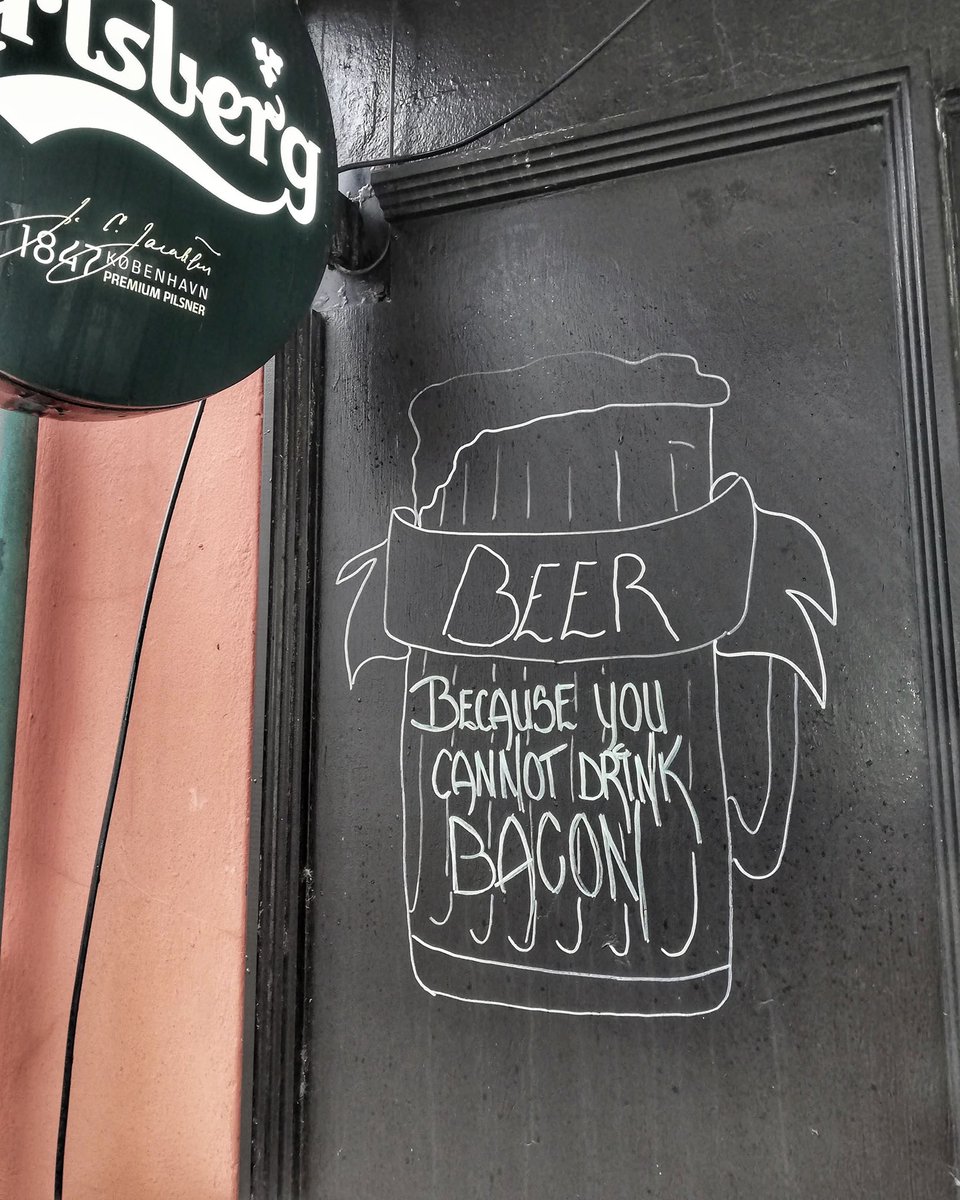 arlsberg
J. C. Jacobsen
1847 KØBENHAVN
PREMIUM PILSNER
BEER
BECAUSE YOU
CANNOT DRINK
BACON